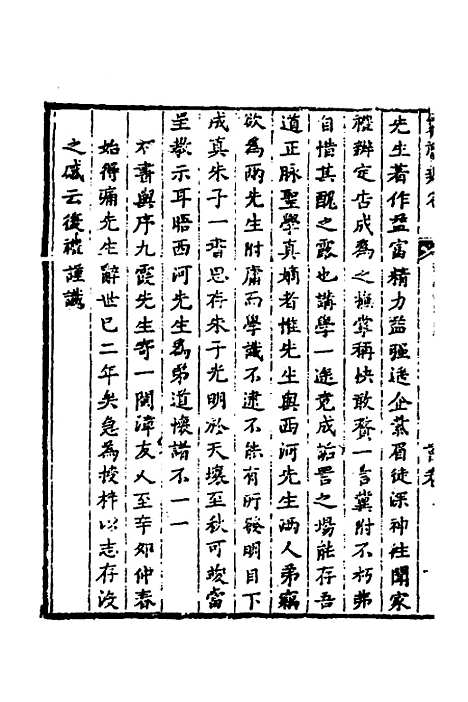 先生著作益富精力益強遥企慕眉徒深神往閒家
襍辨定吿成爲之撫掌稱快敢贅一言冀附不朽弗
自惜其醜之露也講學一途竟成詬詈之場能存吾
道正脉聖學真嫡者惟先生與西河先生兩人弟竊
欲爲兩先生附庸而學識不逮不能有所發明目下
成真朱子一書思存朱子光明於天壤至秋可竣當
呈教示耳晤西河先生爲弟道懷諸不一一
不書與序九霞先生寄一閩漳友人至辛卯仲春
始得痛先生辭世已二年矣急為授梓以志存没
之感云後襍謹識